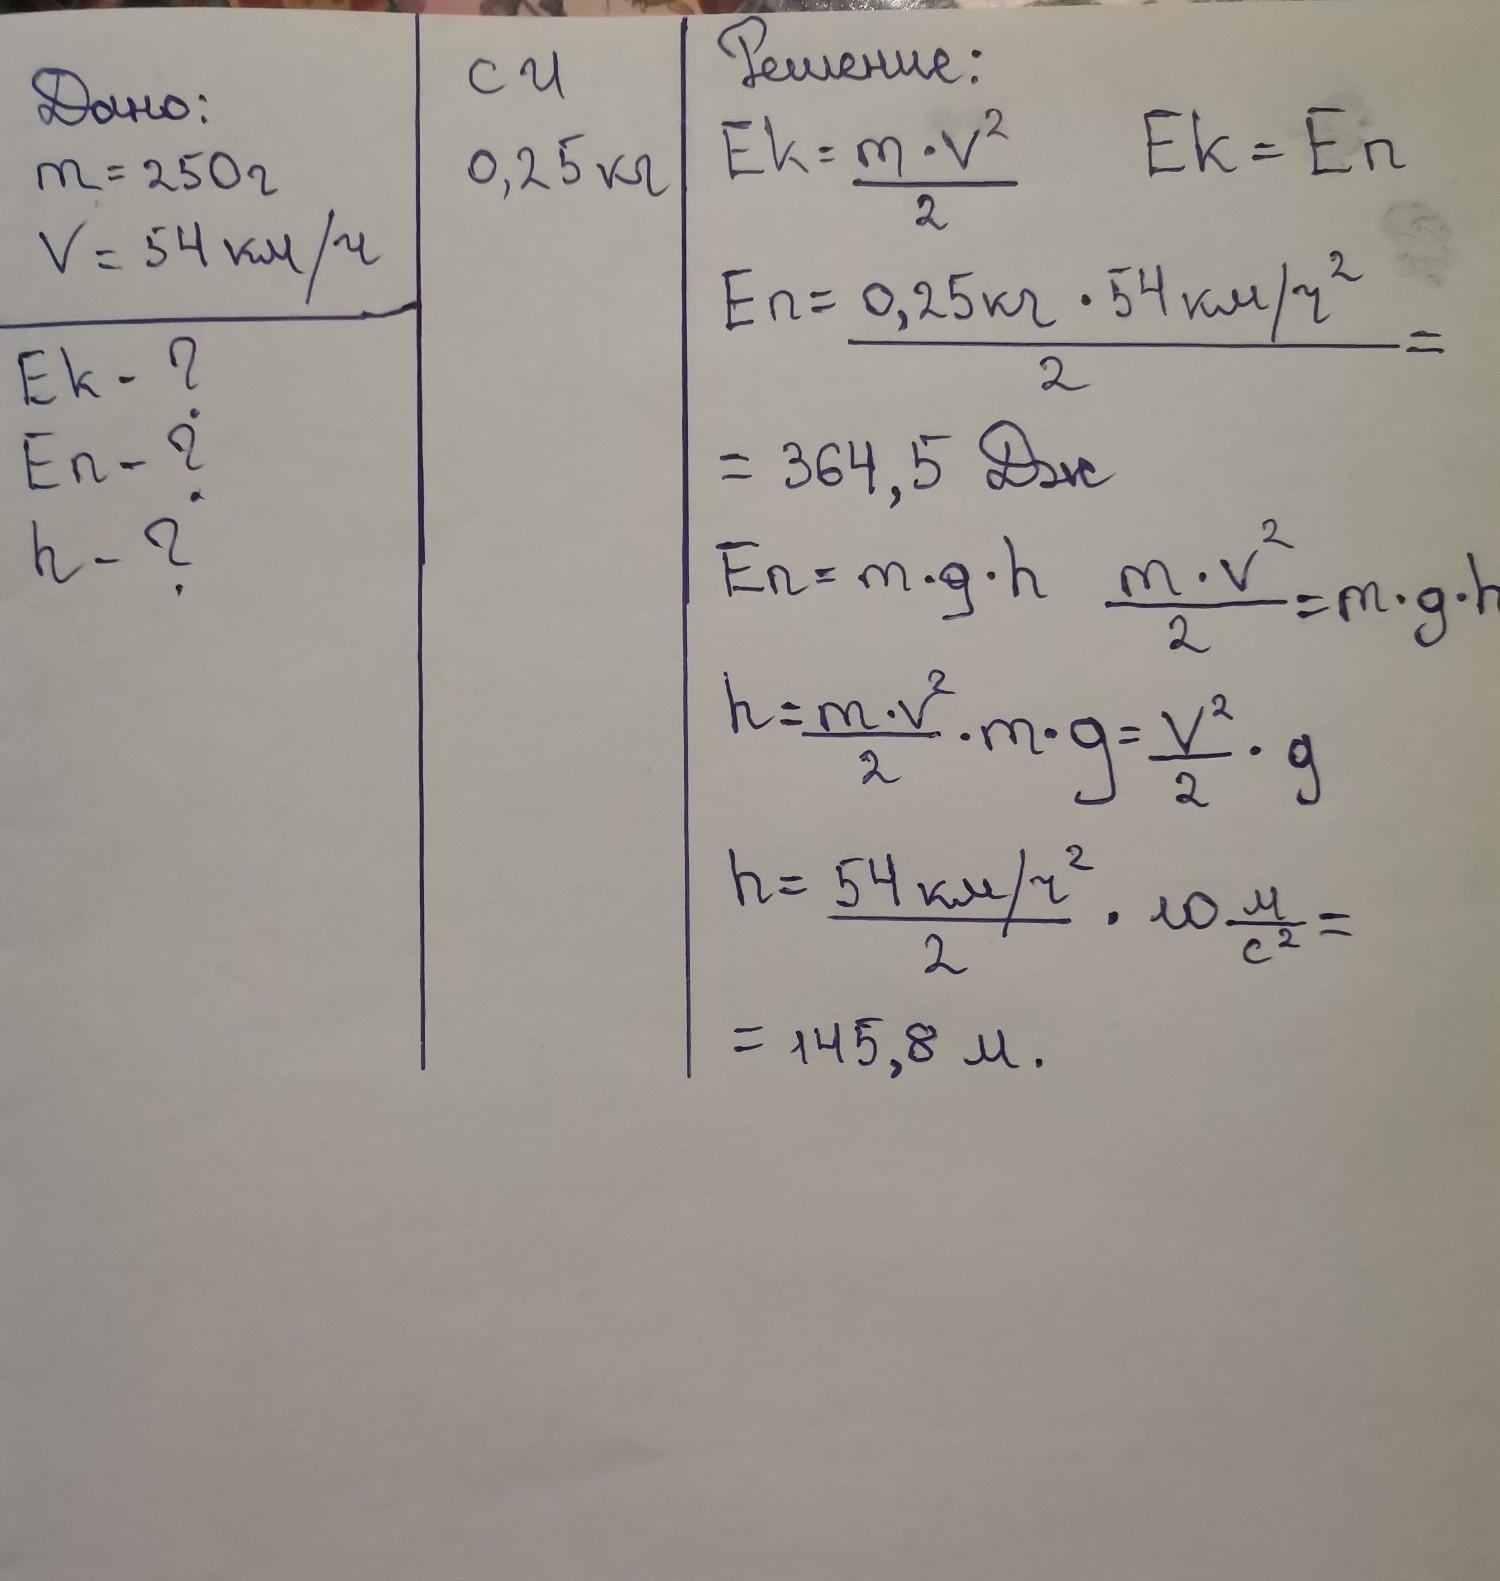 Дано:
m = 250г
V = 54 км/ч
Ek - ?
Eп - ?
h - ?
СИ
0,25 кг
Решение:
Ek = m · v² / 2    Ek = Eп
Eп = 0,25 кг · 54 км/ч² / 2 =
= 364,5 Дж
Eп = m · g · h    m · v² / 2 = m · g · h
h = m · v² / 2 · m · g = V² / 2 · g
h = 54 км/ч² / 2 · 10 м/с² =
= 145,8 м.